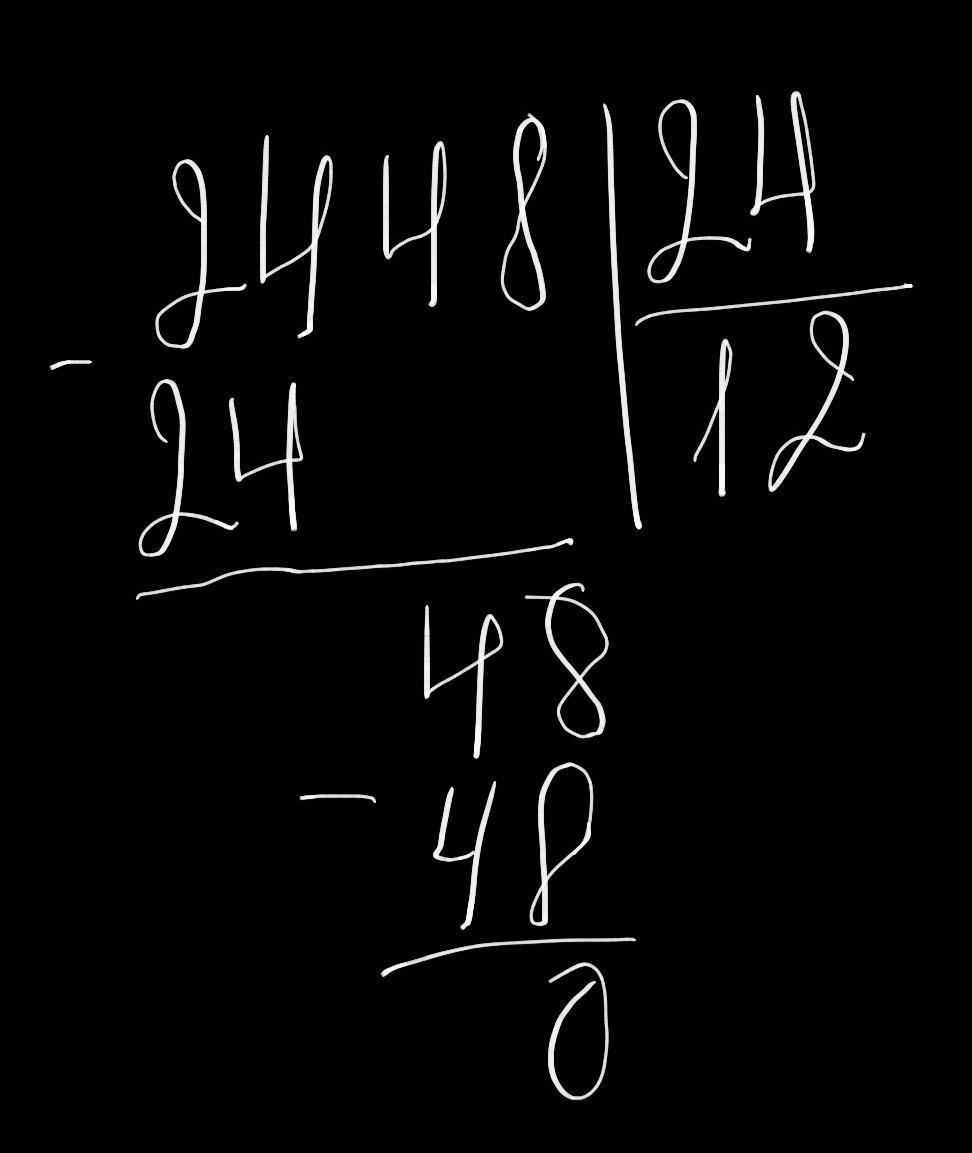 2448 | 24
- 24 12
48
- 48
0